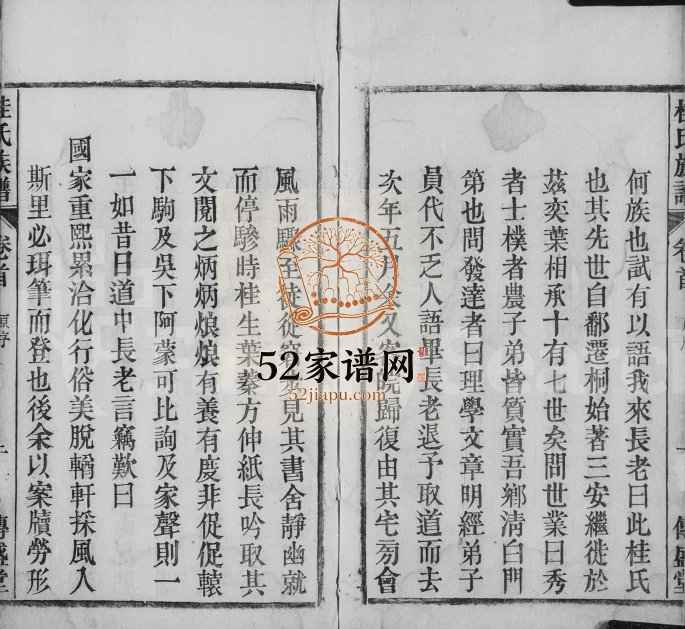 何族也試有以語我來長老曰此桂氏
也其先世自鄱遷桐始著三安繼徙於
茲奕葉相承十有七世矣問世業曰秀
者士樸者農子弟皆質實吾鄉清白門
第也問發達者曰理學文章明經弟子
員代不乏人語畢長老退予取道而去
次年五月余又
歸復由其宅旁會
風雨驟至徒從
見其書舍靜幽就
而停驂時桂生葉蓁方伸紙長吟取其
文閱之炳炳烺烺有養有度非促促轅
下駒及吳下阿蒙可比詢及家聲則一
一如昔日道中長老言竊歎曰
國家重熙累洽化行俗美脫輶軒採風入
斯里必珥筆而登也後余以案牘勞形
桂氏族譜
卷首
傳盛堂
52家谱网
52jiapu.com